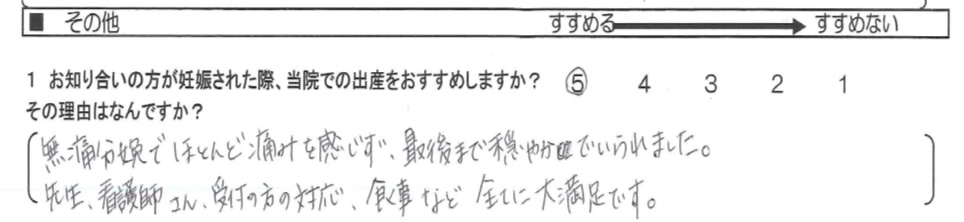 ■ その他 すすめる すすめない
1 お知り合いの方が妊娠された際、当院での出産をおすすめしますか? 5 4 3 2 1
その理由はなんですか?
無痛分娩でほとんど痛みを感じず、最後まで穏やかでいられました。
先生、看護師さん、受付の方の対応、食事など全てに大満足です。